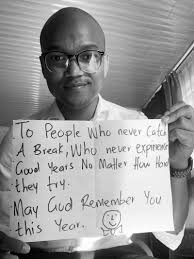 To People Who never Catch
A Break, Who never experience
Good Years No Matter How Hard
they try.
May God Remember You
this Year.